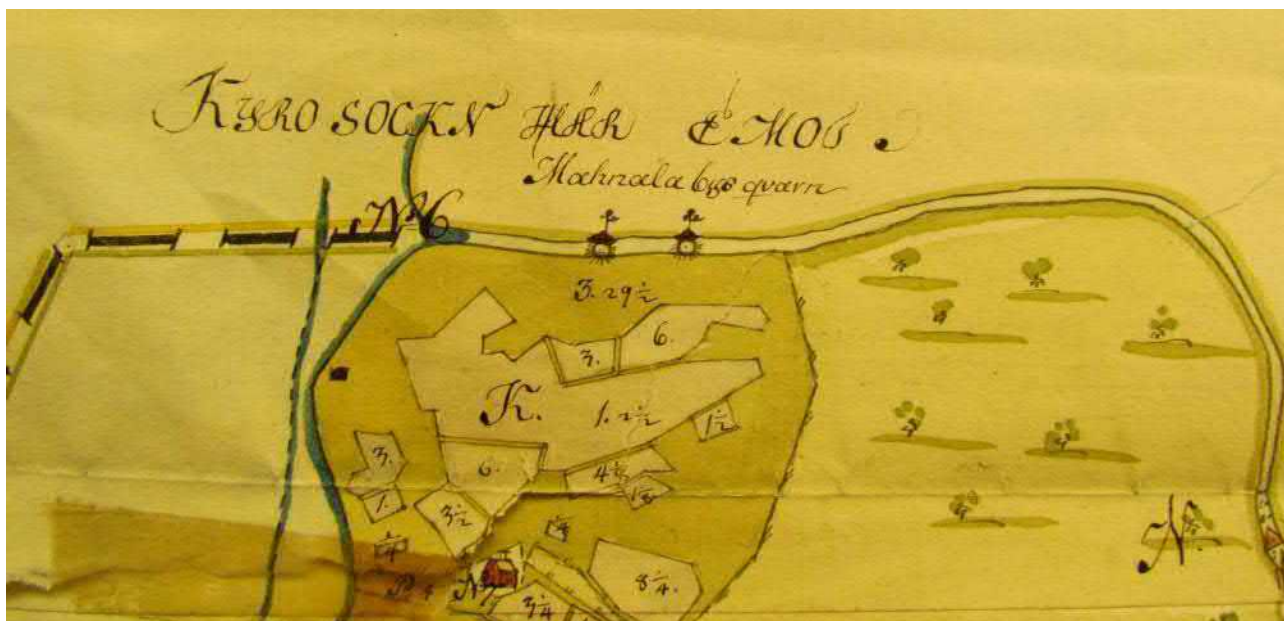 KYRO SOCKN HÄR EMOT.
Mahnala bys qvarn
No 6
3. 29 1/2
6.
3.
K.
1. 2 1/2
1/2
6.
4 1/2
3.
1.
3 1/2
1/4
8 1/4.
3/4
N.